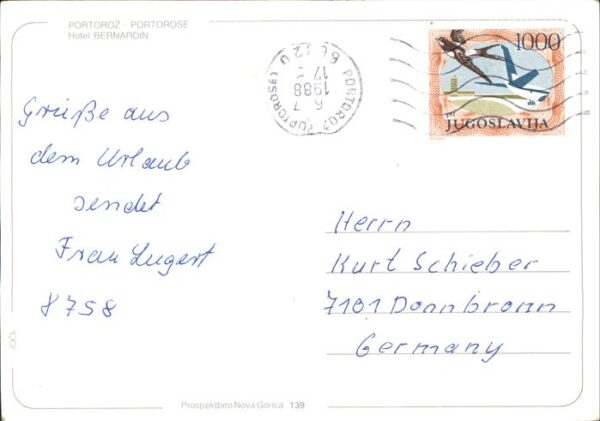 PORTOROŽ - PORTOROSE
Hotel BERNARDIN
1000
JUGOSLAVIJA
66320 PORTOROŽ PORTOROSE
7
6
1988
17
Grüße aus
dem Urlaub
sendet
Frau Lugert
8758
Herrn
Kurt Schieber
7101 Donnbronn
Germany
Prospektbiro Nova Gorica 139